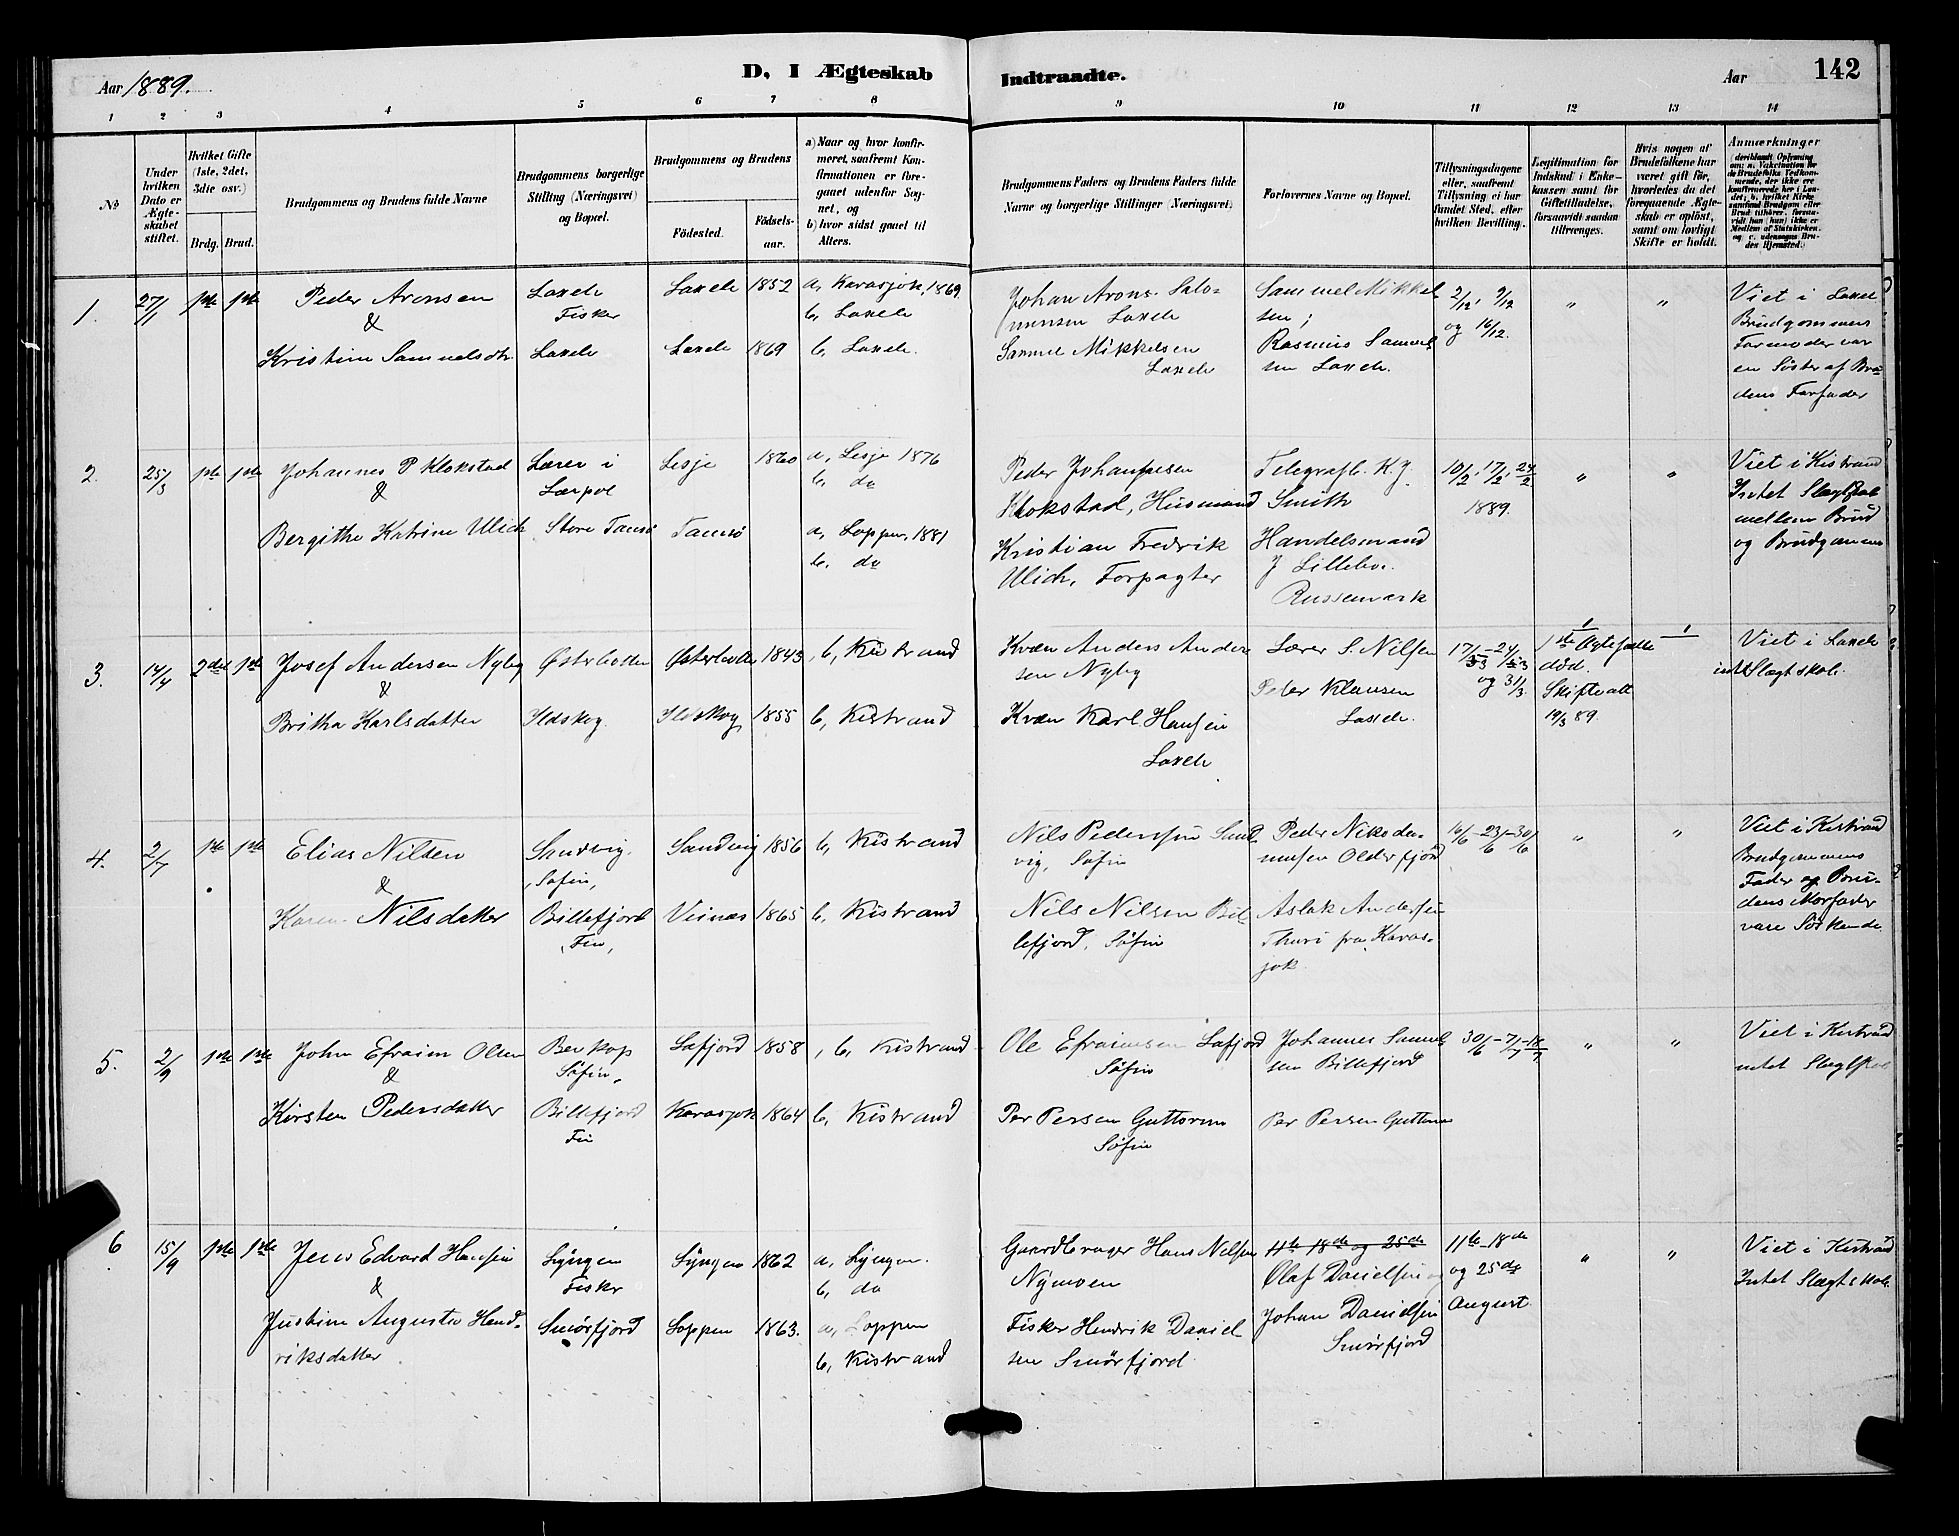 Aar 1889.
D, I Ægteskab Indtraadte.
Aar 142
1 2 3 4 5 6 7 8 9 10 11 12 13 14
No
Under hvilken Dato er Ægteskabet stiftet.
Hvilket Gifte (1ste, 2det, 3die osv.)
Brdg. Brud.
Brudgommens og Brudens fulde Navne
Brudgommens borgerlige Stilling (Næringsvei) og Bopæl.
Brudgommens og Brudens
Födested.
Födselsaar.
a) Naar og hvor konfirmeret, saafremt Konfirmationen er foregaaet udenför Sognet, og
b) hvor sidst gaaet til Alters.
Brudgommens Faders og Brudens Faders fulde Navne og borgerlige Stillinger (Næringsvei)
Forlovernes Navne og Bopæl.
Tillysningsdagene eller, saafremt Tillysning ei har fundet Sted, efter hvilken Bevilling.
Legitimation for Indskud i Enkekassen samt for Giftetilladelse, forsaavidt saadan tiltrænges.
Hvis nogen af Brudefolkene har været gift för, hvorledes da det foregaaende Ægteskab er oplöst, samt om lovligt Skifte er holdt.
Anmærkninger
1. 27/1 1ste 1ste
Peder Aronsen
&
Kristine Samuelsdtr
Laxelv
Fisker
Laxelv
Laxelv 1852
Laxelv 1869
a, Karasjok, 1869
b, Laxelv
b, Laxelv.
Johan Arons. Salomonsen Laxelv
Samuel Mikkelsen
Laxelv
Samuel Mikkelsen;
Rasmus Samuelsen Laxelv.
2/12, 9/12
og 16/12.
" "
Viet i Laxelv
Brudgommens
Farmoder var
en Söster af Brudens Farfader
2. 25/3 1ste 1ste
Johannes P Klokstad
&
Bergithe Katrine Ulich
Lærer i
Store Tamsö
Lesje 1860
Tamsö
a, Lesje 1876
b, do
a, Loppen, 1881
b, do
Peder Johannesen
Klokstad, Husmand
Kristian Fredrik
Ulich, Forpagter
Telegrafb. K. J.
Smith
Handelsmand
J Lillebo.
10/2, 17/2, 24/2.
1889.
" "
Viet i Kistrand
Intet Slægtskab
mellem Brud
og Brudgommen
3. 14/4 2det 1ste
Josef Andersen Nyby
&
Britha Karlsdatter
Østerbotten
Østerbotten 1843
1855
b, Kistrand
b, Kistrand
Kvæn Anders Andersen Nyby
Kvæn Karl Hansen
Laxelv
Lærer S. Nilsen
Peder Klausen
Laxelv.
17/3-24/3
og 31/3.
1ste Ægtefælle
död.
Skifteatt
19/3 89.
Viet i Laxelv
intet Slægtskab.
4. 2/7 1ste 1ste
Elias Nilsen
&
Karen Nilsdatter
Sandvig.
, Söfin,
Billefjord
, Fin,
Sandvig 1856
Veines 1865
b, Kistrand
b, Kistrand
Nils Pedersen Sandvig, Söfin
Nils Nilsen Billefjord, Söfin
Peder Nikodemusen Olderfjord
Aslak Andersen
Thuri fra Karasjok.
16/6-23/6-30/6
" "
Viet i Kistrand
Brudgommens
Fader og Brudens Morfader
vare Söskende
5. 2/9 1ste 1ste
John Efraim Olsen
&
Kirsten Pedersdatter
Berkop
Söfin,
Billefjord
Fin
Lafjord 1858
Karasjok 1864
, b, Kistrand
b, Kistrand
Ole Efraimsen Lafjord
Söfin
Per Persen Guttorm
Söfin
Johannes Samuelsen Billefjord
Per Persen Guttorm
30/6-7/7-14/7
" "
Viet i Kistrand
intet Slægtskab
6 15/9 1ste 1ste
Jens Edvard Hansen
&
Justine Augusta Hendriksdatter
Lyngen
Fisker
Smörfjord
Lyngen 1862
Loppen 1863.
a, Lyngen.
b, do
a, Loppen
b, Kistrand
Gaardbruger Hans Nilsen
Nymoen
Fisker Hendrik Danielsen Smörfjord
11te 18de og 25de
Olaf Danielsen og
Johan Danielsen
Smörfjord
11te-18de
og 25de
August.
" "
Viet i Kistrand
Intet Slægtskab.